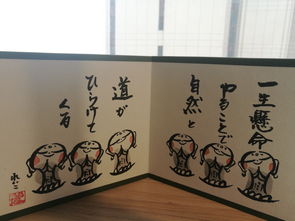 一生懸命
やることで
自然と
道が
ひらけて
くる